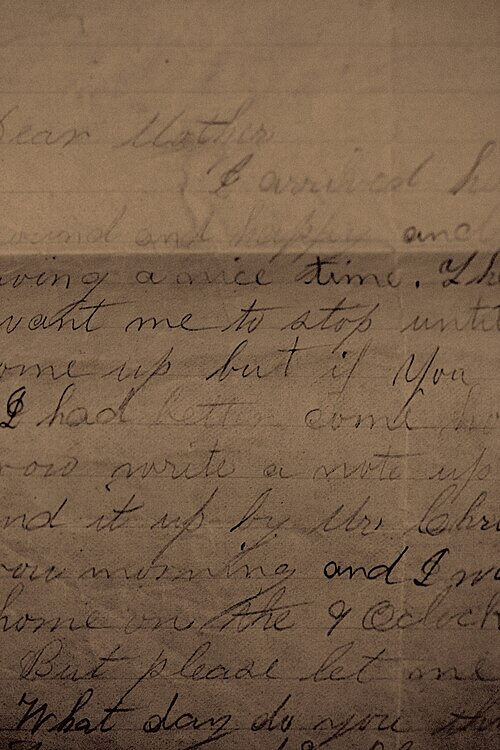 Dear Mother
I arrived he
ound and happy and
ving a nice time. The
want me to stop until
ome up but if You
I had better come ho
row write a note up
nd it up by Mr. Chri
row morning and I wi
home on the 9 Oclock
But please let me
What day do you th